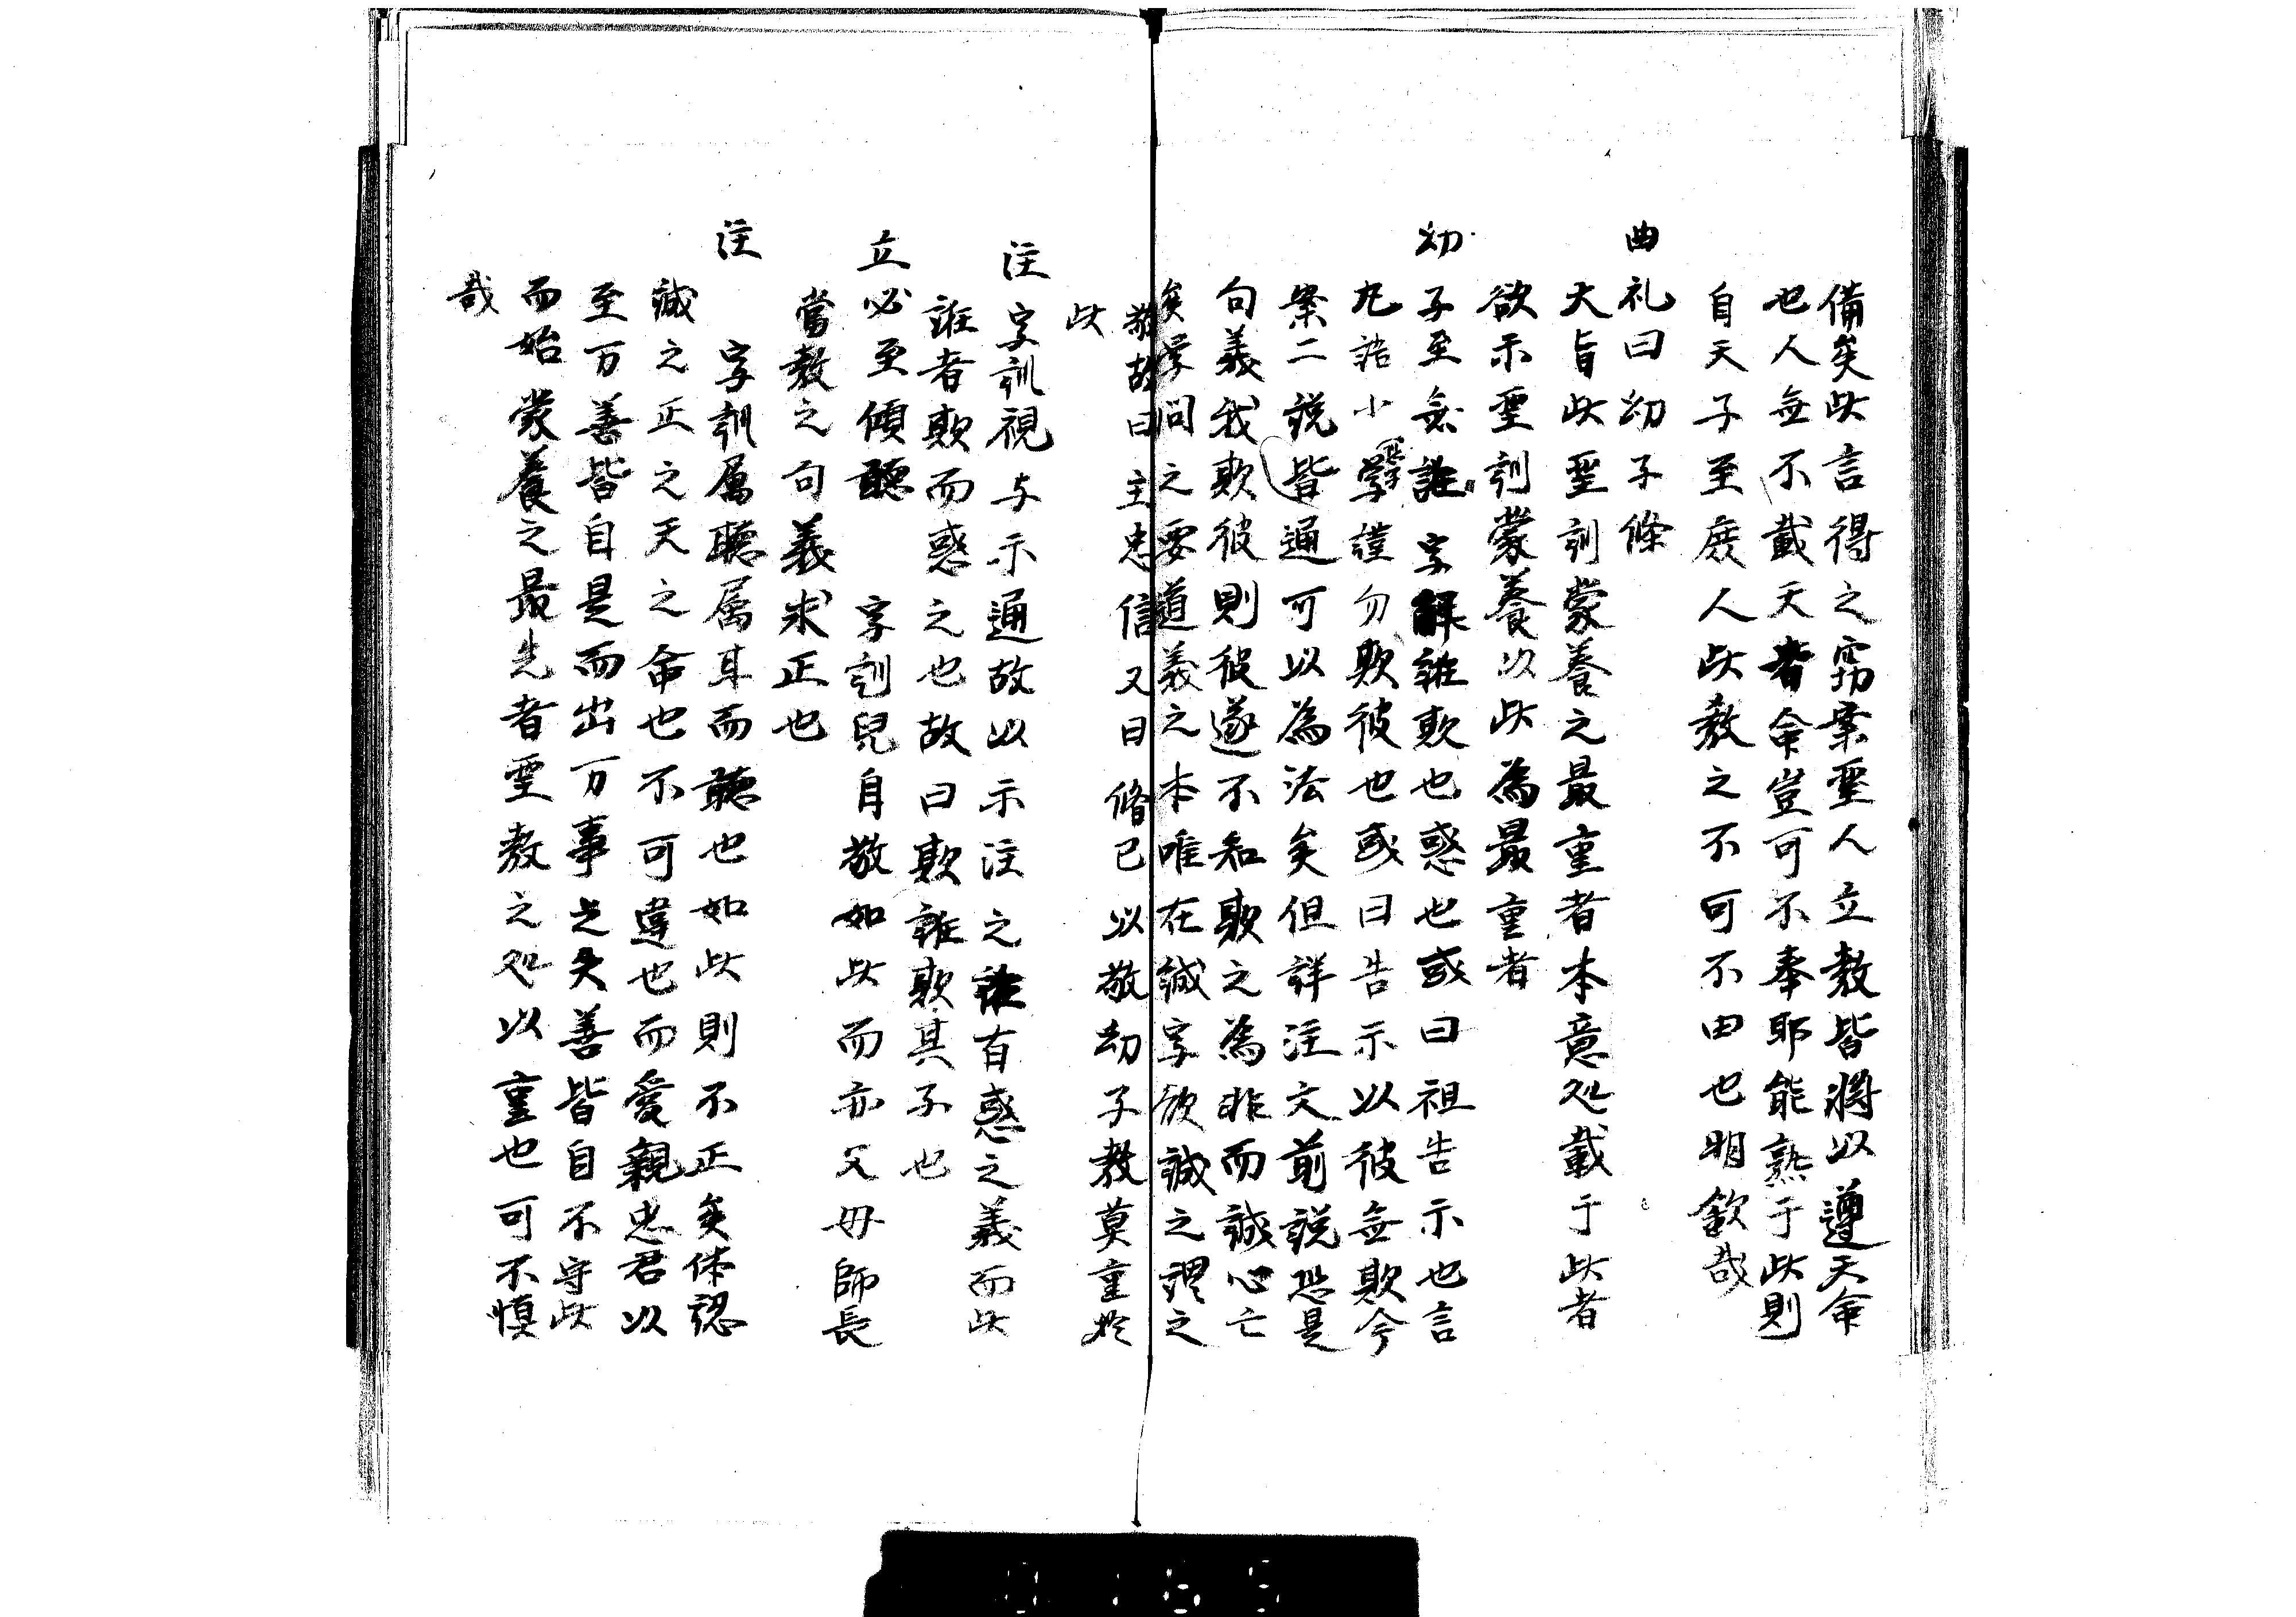 備矣此言得之窃案聖人立教皆将以遵天命
也人無不戴天者命豈可不奉耶能熟于此則
自天子至庶人此教之不可不由也明欽哉
曲礼曰幼子條
大旨此聖訓蒙養之最重者本意処載于此者
欲示聖訓蒙養以此為最重者
幼子至無誑 字解誑欺也惑也或曰祖告示也言
凡誥小学謹勿欺彼也或曰告示以彼無欺今
案二說皆通可以為法矣但詳注文前說恐是
句義我欺彼則彼遂不知欺之為非而誠心亡
矣学問之要道義之本唯在誠字欲誠之謂之
敬故曰主忠信又曰脩己以敬幼子教莫重於
此
注 字訓視与示通故以示注之誑有惑之義而此
誑者欺而惑之也故曰欺誑欺其子也
立必至傾聽 字訓兒自敬如此而亦父母師長
當教之句義求正也
注 字訓属聽属耳而聽也如此則不正矣体認
誠之正之天之命也不可違也而愛親忠君以
至万善皆自是而出万事之失善皆自不守此
而始蒙養之最先者聖教之処以重也可不慎
哉